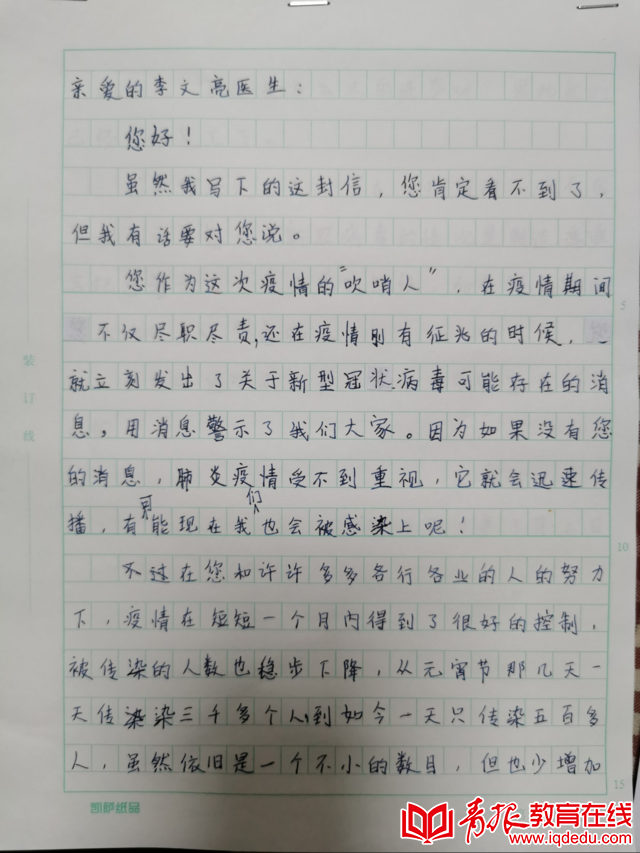 亲爱的李文亮医生：
您好！
虽然我写下的这封信，您肯定看不到了，
但我有话要对您说。
您作为这次疫情的“吹哨人”，在疫情期间
不仅尽职尽责，还在疫情刚有征兆的时候，
就立刻发出了关于新型冠状病毒可能存在的消
息，用消息警示了我们大家。因为如果没有您
的消息，肺炎疫情受不到重视，它就会迅速传
播，有可能现在我们也会被感染上呢！
不过在您和许许多多各行各业的人的努力
下，疫情在短短一个月内得到了很好的控制，
被传染的人数也稳步下降，从元宵节那几天一
天传染染三千多个人到如今一天只传染五百多
人，虽然依旧是一个不小的数目，但也少增加
装订线
5
10
15
凯萨纸品
青报教育在线
www.iqdedu.com